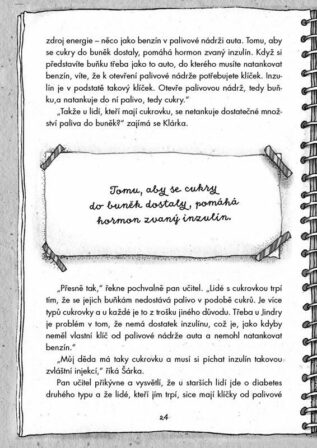 zdroj energie – něco jako benzín v palivové nádrži auta. Tomu, aby
se cukry do buněk dostaly, pomáhá hormon zvaný inzulín. Když si
představíte buňku třeba jako to auto, do kterého musíte natankovat
benzín, víte, že k otevření palivové nádrže potřebujete klíček. Inzu-
lín je v podstatě takový klíček. Otevře palivovou nádrž, tedy buň-
ku,a natankuje do ní palivo, tedy cukry.“
„Takže u lidí, kteří mají cukrovku, se netankuje dostatečné množ-
ství paliva do buněk?“ zajímá se Klárka.
Tomu, aby se cukry
do buněk dostaly, pomáhá
hormon zvaný inzulín.
„Přesně tak,“ řekne pochvalně pan učitel. „Lidé s cukrovkou trpí
tím, že se jejich buňkám nedostává palivo v podobě cukrů. Je více
typů cukrovky a u každé je to z trošku jiného důvodu. Třeba u Jindry
je problém v tom, že nemá dostatek inzulínu, což je, jako kdyby
neměl vlastní klíč od palivové nádrže auta a nemohl natankovat
benzín.“
„Můj děda má taky cukrovku a musí si píchat inzulín takovou
zvláštní injekcí,“ říká Šárka.
Pan učitel přikývne a vysvětlí, že u starších lidí jde o diabetes
druhého typu a že lidé, kteří jím trpí, sice mají klíčky od palivové
24